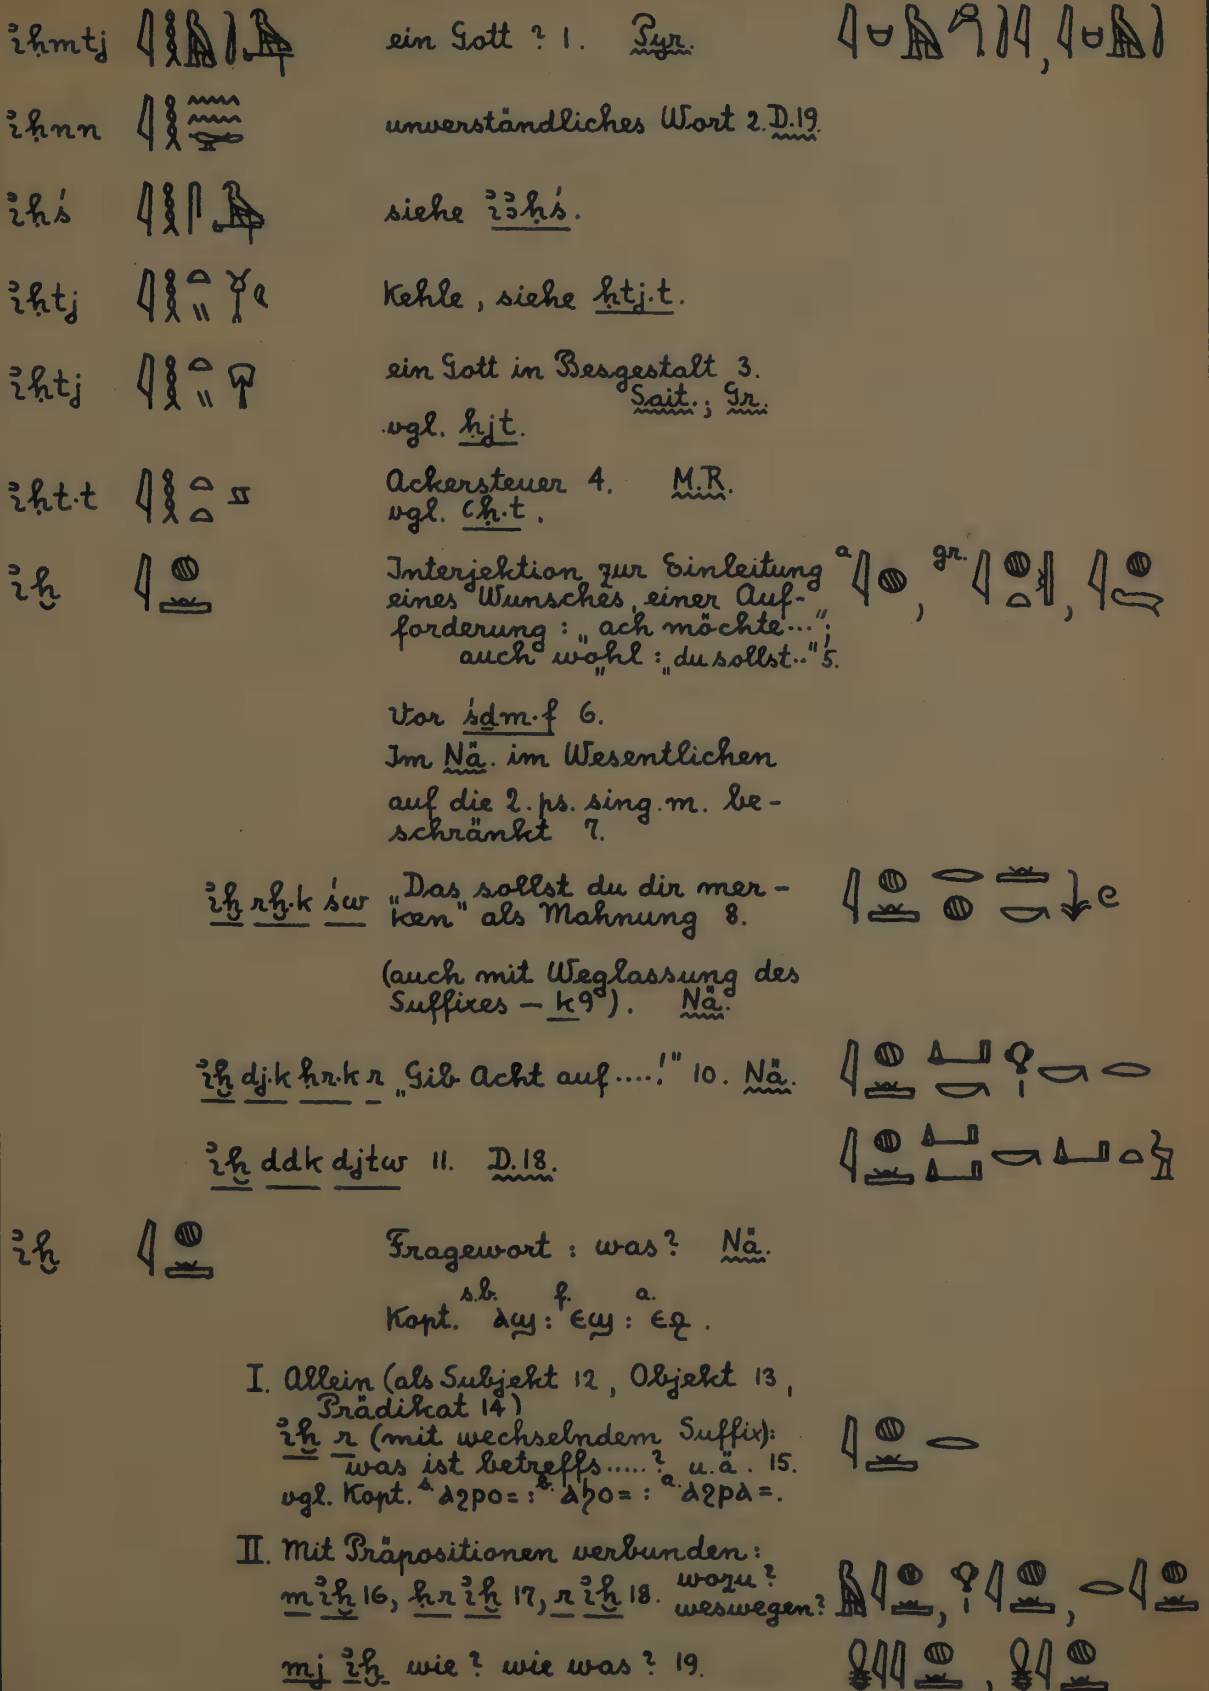 ı͗ḥmtj ein Gott ? 1. Pyr.
ı͗ḥnn unverständliches Wort 2. D.19.
ı͗ḥś siehe ı͗ꜣḥś.
ı͗ḥtj Kehle, siehe ḥtj.t.
ı͗ḥtj ein Gott in Besgestalt 3.
Sait.; Gr.
vgl. ḥjt.
ı͗ḥt.t Ackersteuer 4. M.R.
vgl. ꜥḥ.t.
ı͗ḫ Interjektion zur Einleitung a gr.
eines Wunsches, einer Auf-
forderung: „ach möchte...";
auch wohl: „du sollst.." 5.
Vor śḏm.f 6.
Im Nä. im Wesentlichen
auf die 2. ps. sing. m. be-
schränkt 7.
ı͗ḫ rḫ.k św „Das sollst du dir mer-
ken" als Mahnung 8.
(auch mit Weglassung des
Suffixes – k 9). Nä.
ı͗ḫ dj.k ḥr.k r „Gib Acht auf....!" 10. Nä.
ı͗ḫ ddk djtw 11. D.18.
ı͗ḫ Fragewort: was? Nä.
s.b. f. a.
Kopt. ⲁϣ : ⲉϣ : ⲉϩ.
I. Allein (als Subjekt 12, Objekt 13,
Prädikat 14)
ı͗ḫ r (mit wechselndem Suffix):
was ist betreffs.....? u.ä. 15.
vgl. Kopt. s. ⲁϩⲣⲟ= : b. ⲁϧⲟ= : a. ⲁϩⲣⲁ=.
II. Mit Präpositionen verbunden:
m ı͗ḫ 16, ḥr ı͗ḫ 17, r ı͗ḫ 18. wozu?
weswegen?
mj ı͗ḫ wie? wie was? 19.